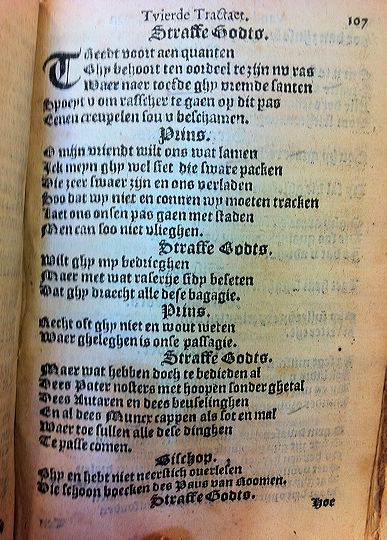 Tvierde Tractaet.
107
Straffe Godts.
Treedt voort aen quanten
Ghy behoort ten oordeel te zijn nu ras
Waer naer toefde ghy vremde santen
Spoeyt v om rasscher te gaen op dit pas
Eenen creupelen sou v beschamen.
Prins.
O mijn vriendt wilt ons wat lamen
Ick meyn ghy wel siet die sware packen
Die zeer swaer zijn en ons verladen
Soo dat wy niet en connen wy moeten tracken
Laet ons onsen pas gaen met staden
Men can soo niet vlieghen.
Straffe Godts.
Wilt ghy my bedrieghen
Maer met wat raserije sidy beseten
Dat ghy draecht alle dese bagagie.
Prins.
Recht oft ghy niet en wout weten
Waer gheleghen is onse passagie.
Straffe Godts.
Maer wat hebben doch te bedieden al
Dees Pater nosters met hoopen sonder ghetal
Dees Autaren en dees beuselinghen
En al dees Munex cappen als sot en mal
Waer toe sullen alle dese dinghen
Te passe comen.
Bischop.
Ghy en hebt niet neerstich overlesen
Die schoon boecken des Paus van Roomen.
Straffe Godts.
Hoe